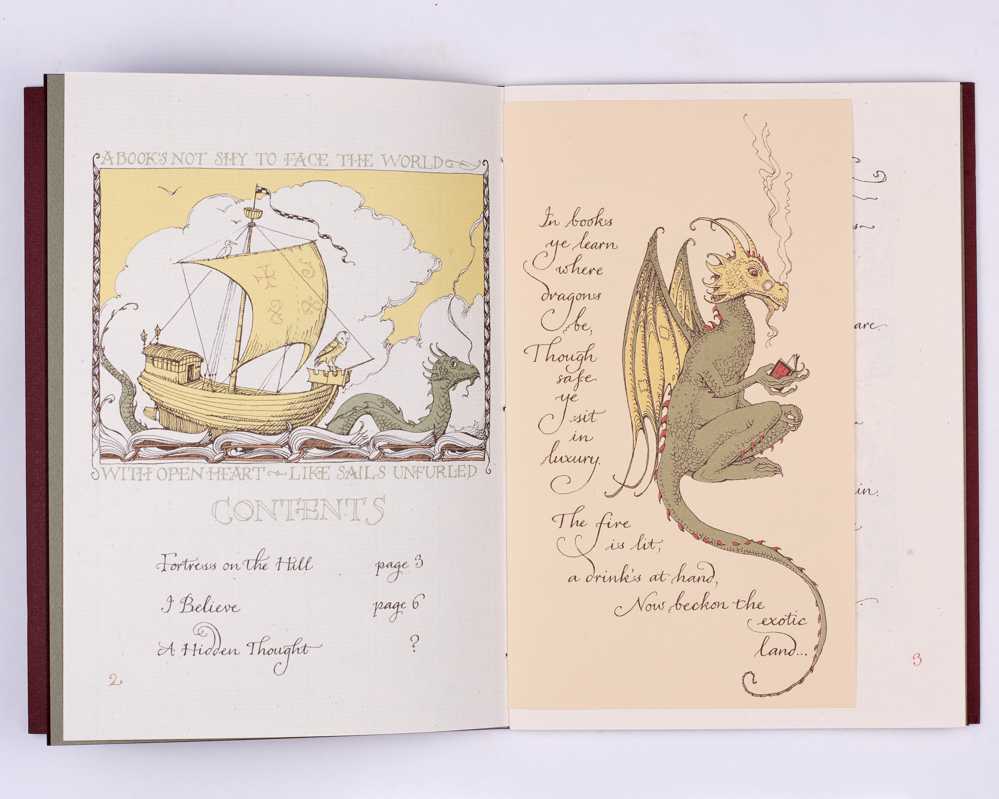 A BOOK'S NOT SHY TO FACE THE WORLD
WITH OPEN HEART ~ LIKE SAILS UNFURLED
CONTENTS
Fortress on the Hill page 3
I Believe page 6
A Hidden Thought ?
2
In books
ye learn
where
dragons
be,
Though
safe
ye
sit
in
luxury.
The fire
is lit,
a drink's at hand,
Now beckon the
exotic
land...
are
in.
3